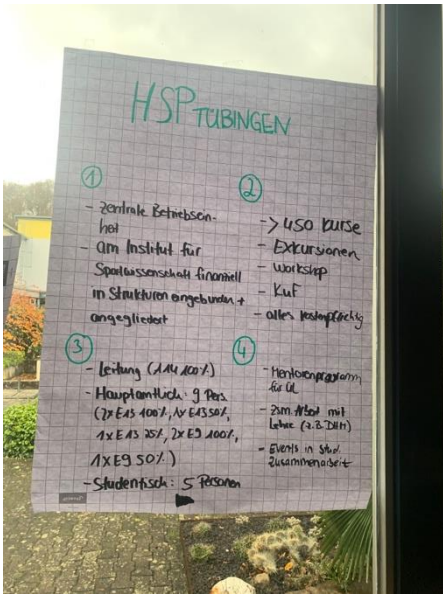 HSP TÜBINGEN
①
- zentrale Betriebsein-
heit
- am Institut für
Sportwissenschaft finanziell
in Strukturen angebunden +
angegliedert
②
- > 450 Kurse
- Exkursionen
- Workshop
- KuF
- alles kostenpflichtig
③
- Leitung (A14 100%)
- Hauptamtlich: 9 Pers.
(2x E13 100%, 1x E13 50%,
1x E13 25%, 2x E9 100%,
1x E9 50%)
- Studentisch: 5 Personen
④
- Mentorenprogramm
für ÜL
- Zsm. Arbeit mit
Lehre (z.B. DHM)
- Events in Stud.
Zusammenarbeit